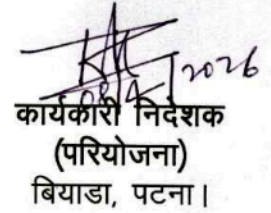 2026
कार्यकारी निदेशक
(परियोजना)
बियाडा, पटना।